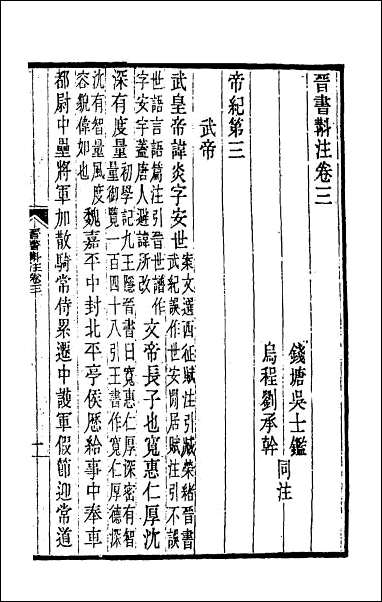 晉書斠注卷三
錢塘吳士鑑
烏程劉承幹
同注
帝紀第三
武帝
武皇帝諱炎字安世
案文選西征賦注引臧榮緒晉書
武紀誤作世安閒居賦注引不誤
世說言語篇注引晉世譜作
字安宇蓋唐人避諱所改
文帝長子也寬惠仁厚沈
深有度量
初學記九王隱晉書曰寬惠仁厚深密有智
量御覽一百四十八引王書作寬仁厚德深
沈有智量風度
容貌偉如也
魏嘉平中封北平亭侯歷給事中奉車
都尉中壘將軍加散騎常侍累遷中護軍假節迎常道
晉書斠注卷三
一